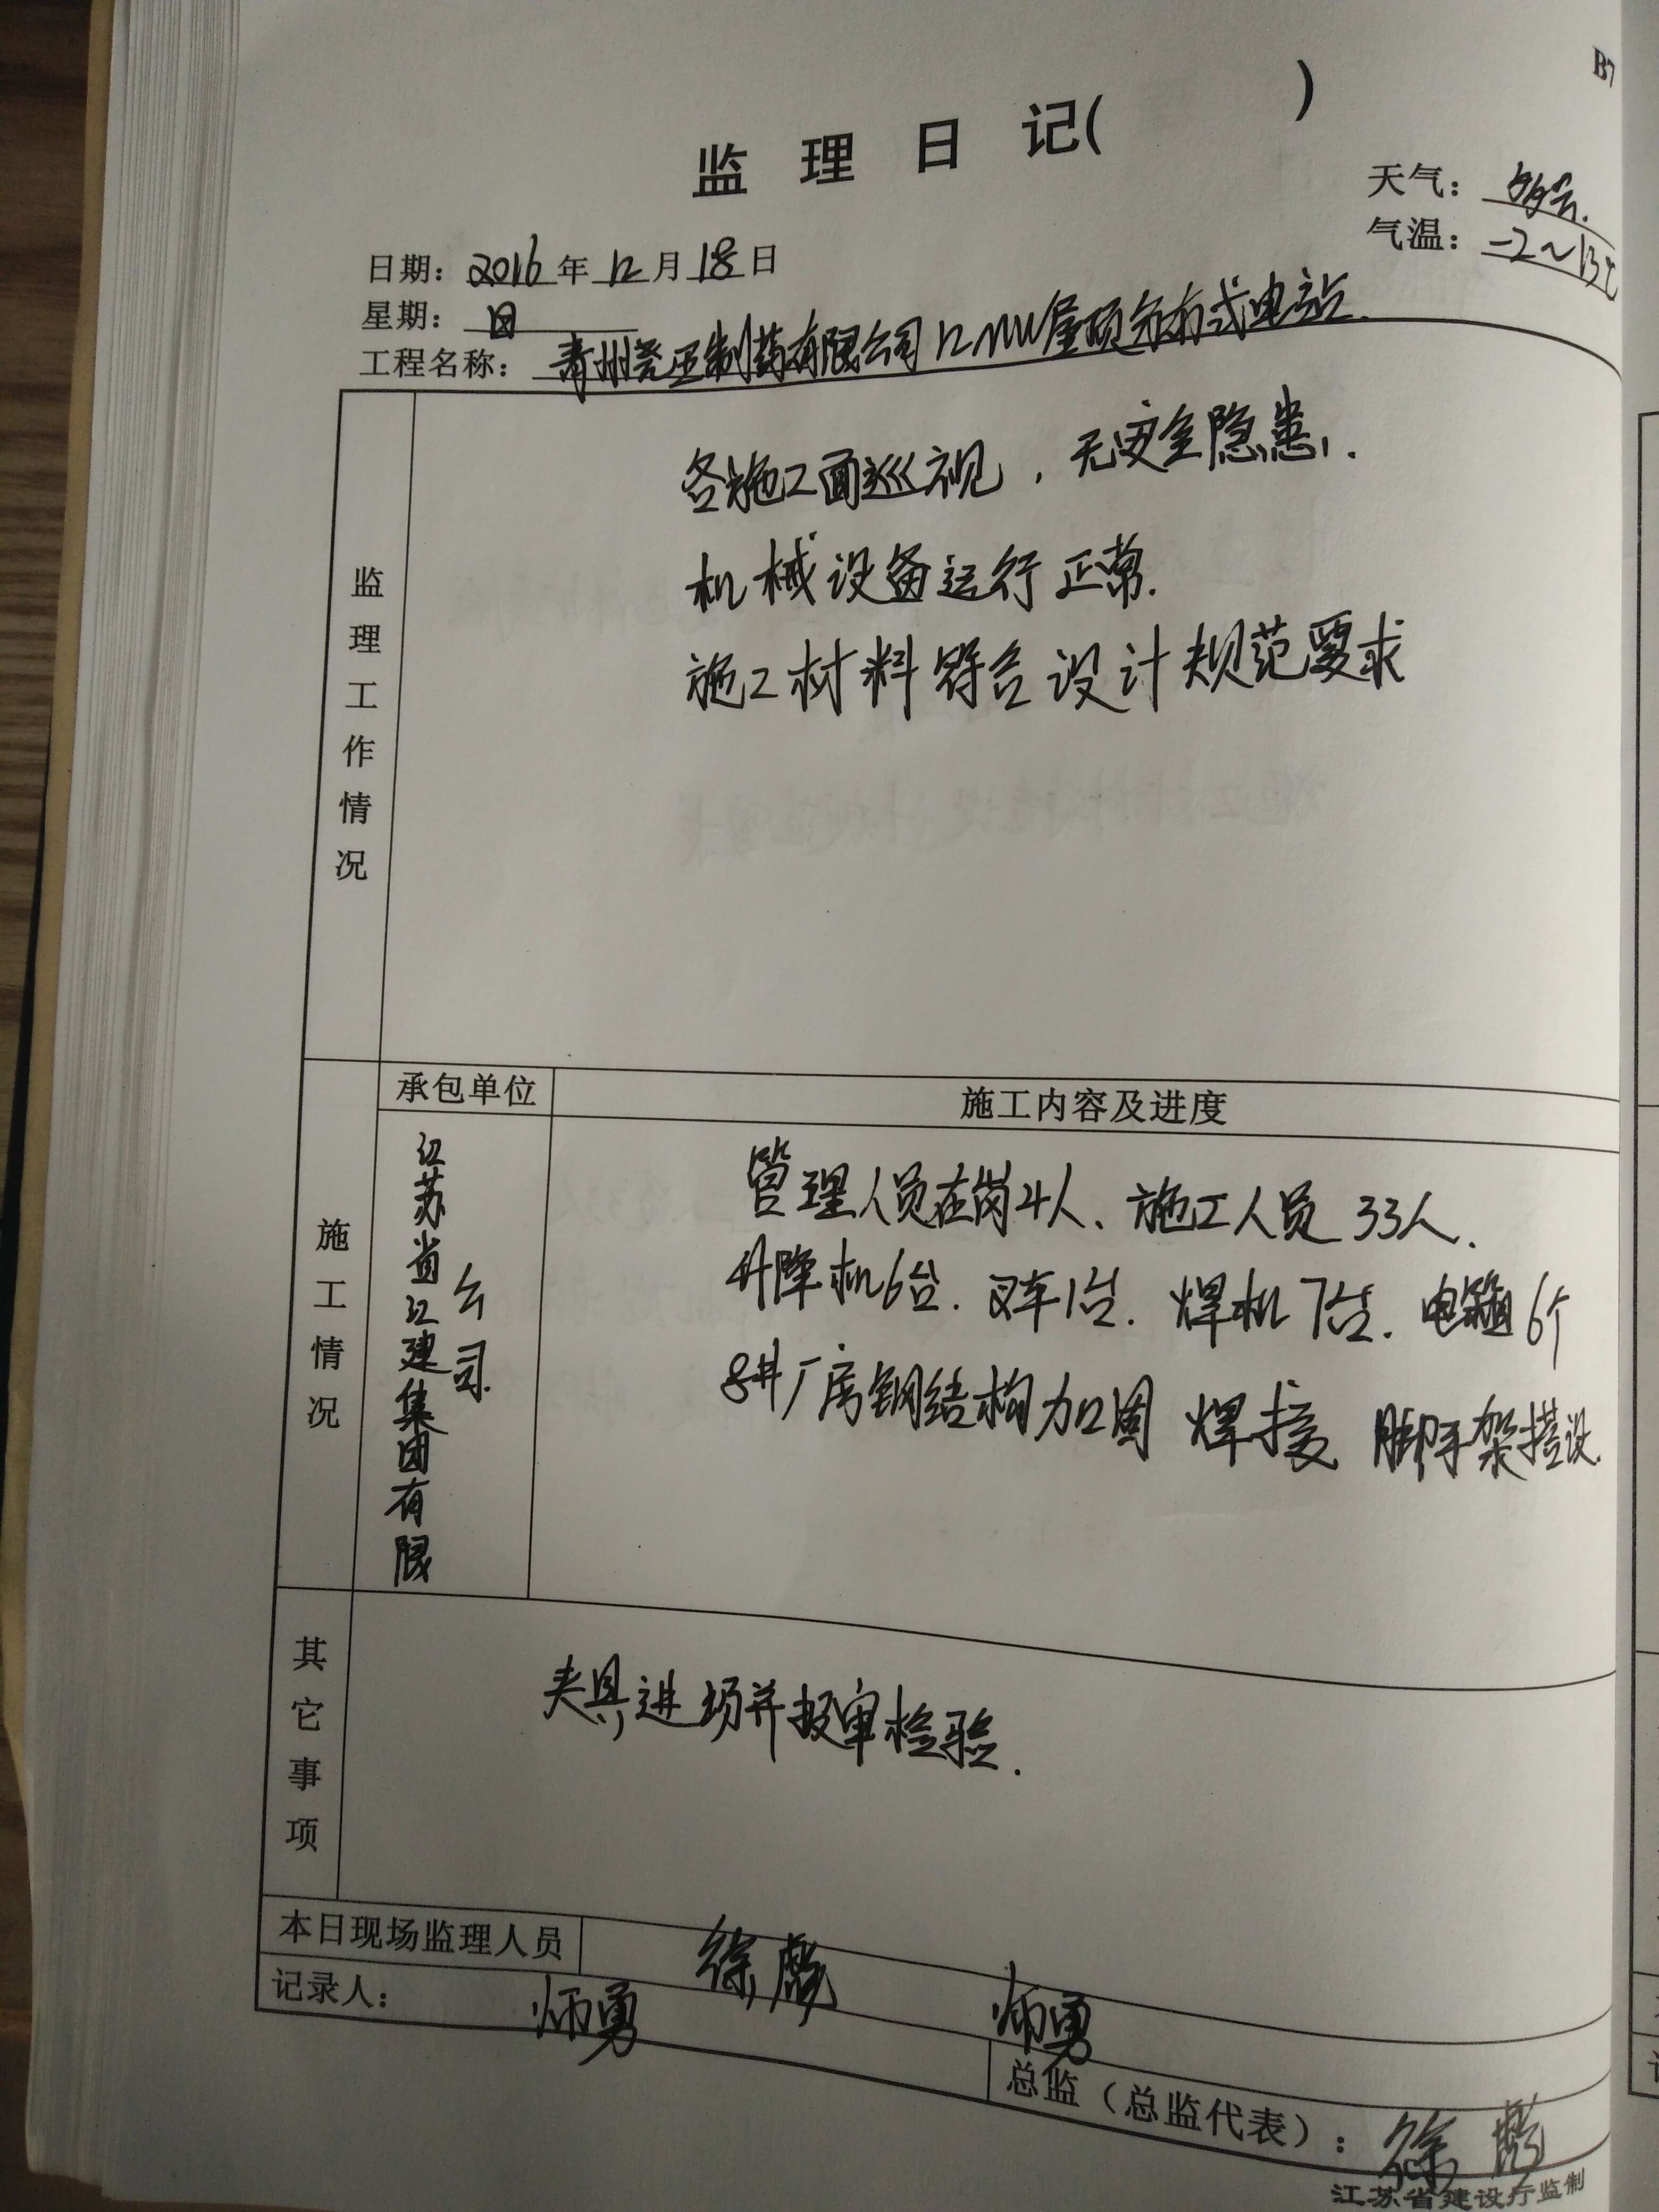 B7
监理日记( )
天气：多云.
气温：-2~13℃
日期：2016年12月18日
星期：日
工程名称：青州尧王制药有限公司12MW屋顶分布式电站.
监理工作情况
各施工面巡视，无安全隐患.
机械设备运行正常.
施工材料符合设计规范要求
施工情况
承包单位
施工内容及进度
江苏省江建集团有限
公司.
管理人员在岗4人、施工人员33人.
升降机6台.叉车1台.焊机7台.电箱6个
8#厂房钢结构加固 焊接 脚手架搭设.
其它事项
夹具进场并报审检验.
本日现场监理人员 徐彪 师勇
记录人：师勇
总监（总监代表）：徐彪
江苏省建设厅监制